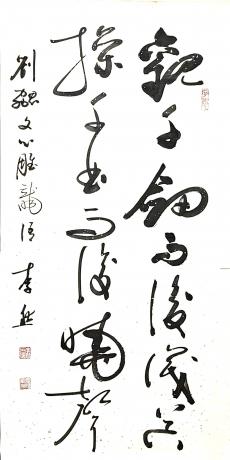 觀千劍而後識器
操千曲而後曉聲
劉勰文心雕龍語 李